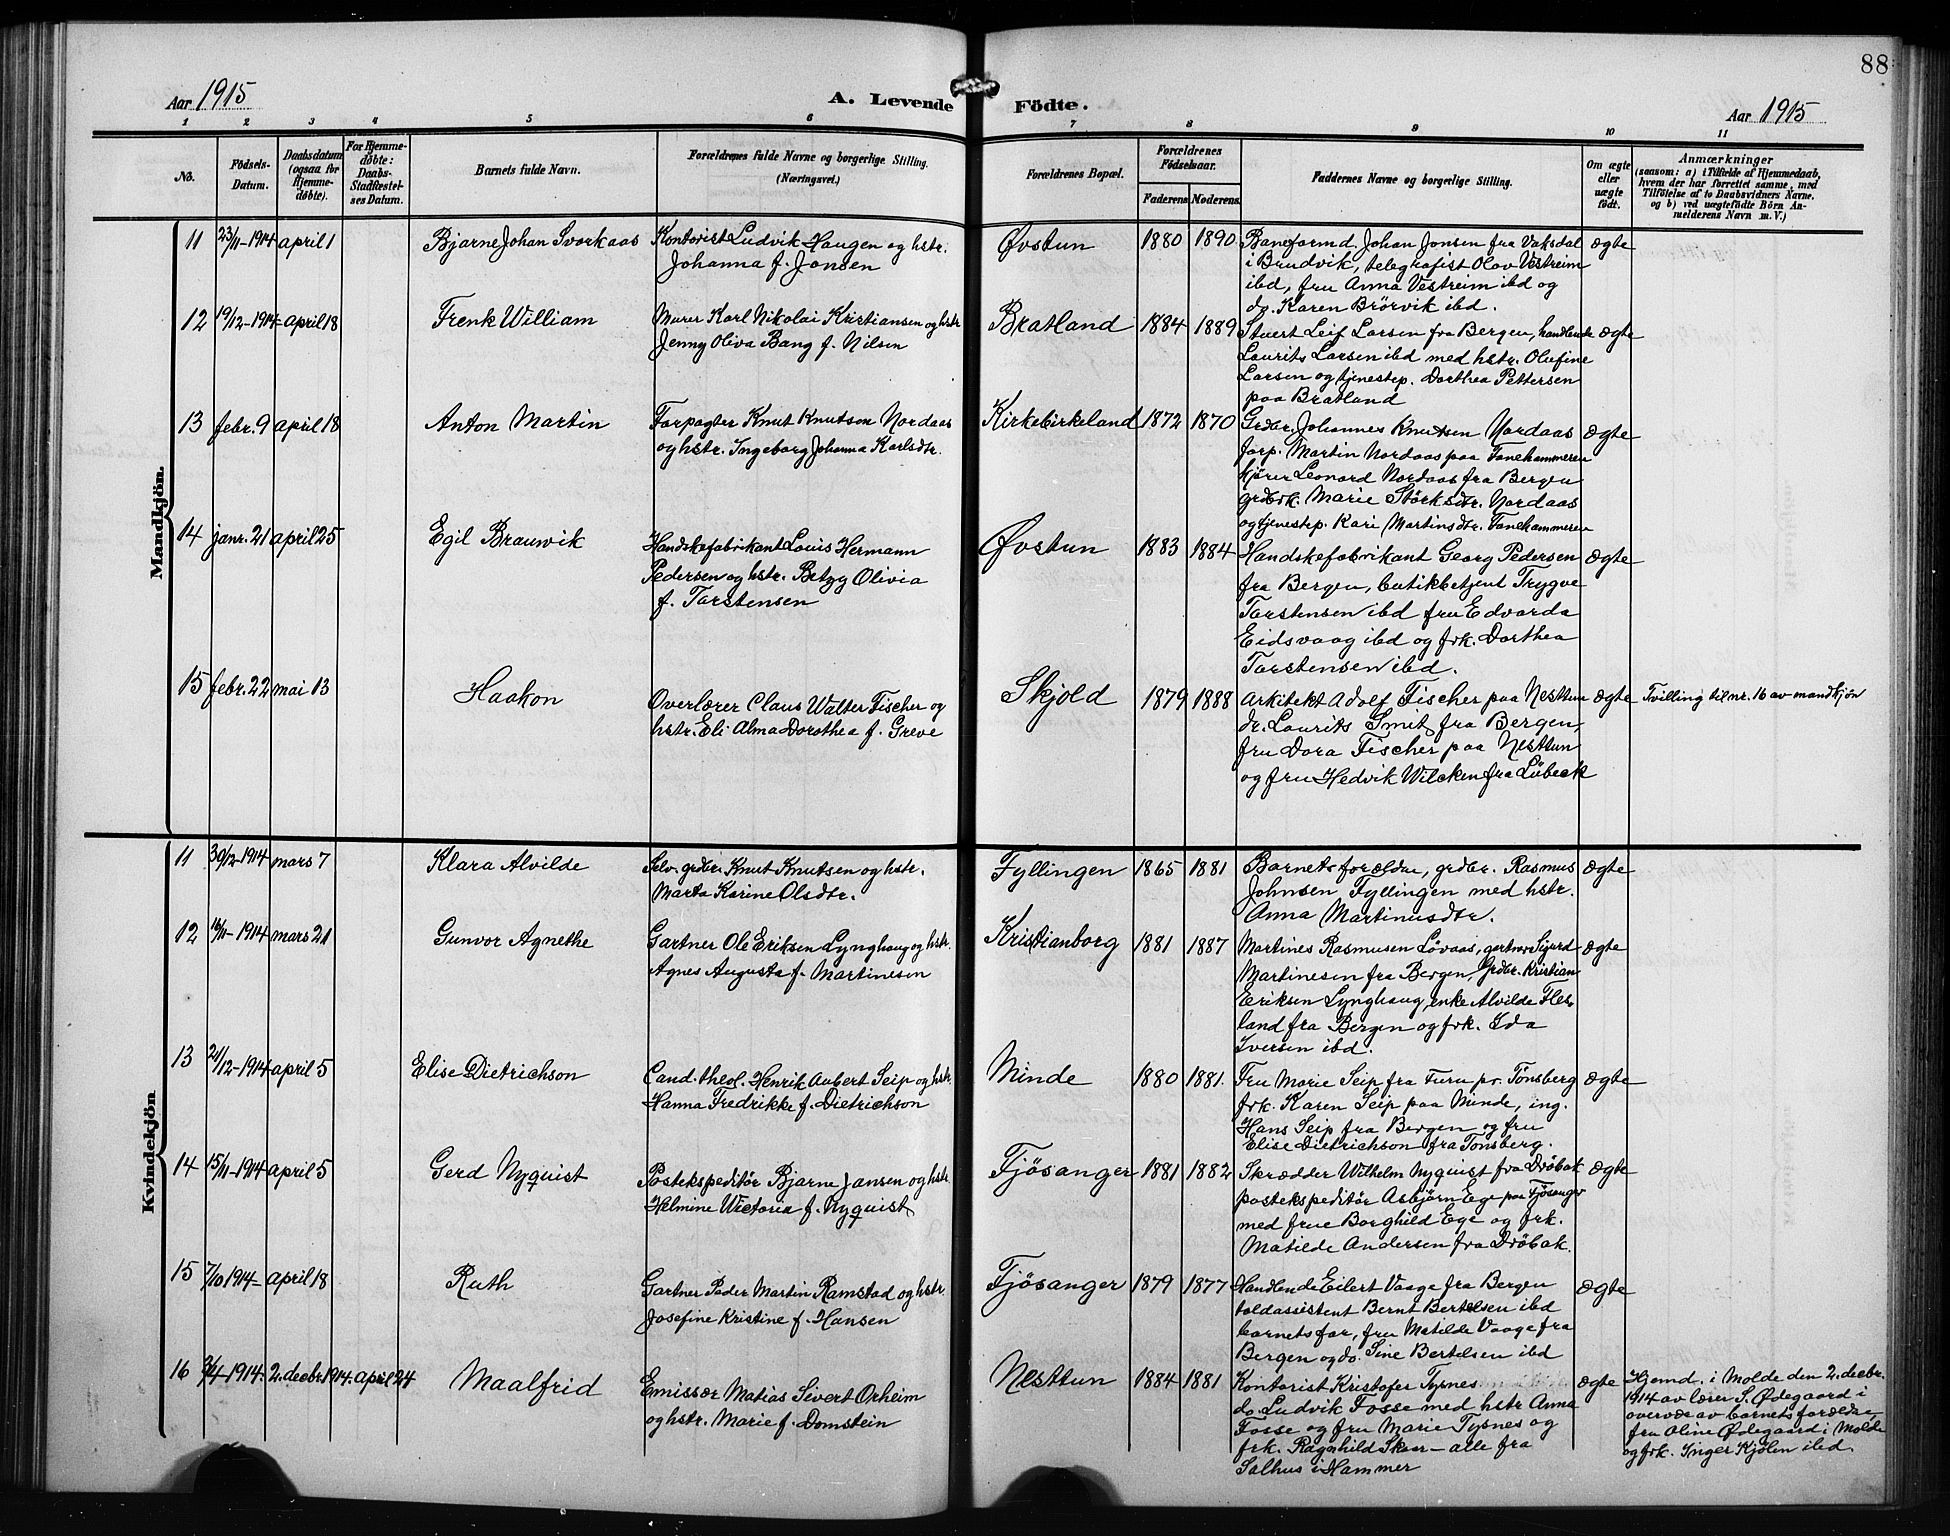 88
Aar 1915
A. Levende
Födte.
Aar 1915
1 2 3 4 5 6 7 8 9 10 11
No.
Födsels-
Datum.
Daabsdatum
(ogsaa for
Hjemme-
döbte).
For Hjemme-
döbte:
Daabs-
Stadfæstel-
ses Datum.
Barnets fulde Navn.
Forældrenes fulde Navne og borgerlige Stilling.
(Næringsvei.)
Forældrenes Bopæl.
Forældrenes
Födselsaar.
Faderens Moderens
Faddernes Navne og borgerlige Stilling.
Om ægte
eller
uægte
födt.
Anmærkninger
(saasom: a) i Tilfælde af Hjemmedaab,
hvem der har forrettet samme, med
Tilföielse af to Daabsvidners Navne.
og b) ved uægtefödte Börn An-
melderens Navn m. V.)
Mandkjön.
11 23/11-1914 april 1 Bjarne Johan Svorkaas
Kontorist Ludvik Haugen og hstr.
Johanna f. Jonsen
Øvstun 1880 1890
Baneformd. Johan Jonsen fra Vaksdal
i Brudvik, telegrafist Olav Vestreim
ibd, fru Anna Vestreim ibd og
do. Karen Brörvik ibd.
ægte
12 19/12-1914 april 18 Frenk William
Murer Karl Nikolai Kristiansen og hstr
Jenny Oliva Bang f. Nilsen
Bratland 1884 1889
Stuert Leif Larsen fra Bergen, handlende
Laurits Larsen ibd med hstr. Olufine
Larsen og tjenestep. Dorthea Pettersen
paa Bratland
ægte
13 febr. 9 april 18 Anton Martin
Forpagter Knut Knutsen Nordaas
og hstr. Ingeborg Johanna Karlsdtr.
Kirkebirkeland 1872 1870
Grdbr. Johannes Knutsen Nordaas
forp. Martin Nordaas paa Fanehammeren
kjører Leonard Nordaas fra Bergen
grdbrk. Marie Störksdtr. Nordaas
og tjenestep. Kari Martinsdtr. Fanehammeren
ægte
14 janr. 21 april 25 Egil Brauwik
Handskefabrikant Louis Hermann
Pedersen og hstr. Betzy Olivia
f. Torstensen
Øvstun 1883 1884
Handskefabrikant Georg Pedersen
fra Bergen, butikbetjent Trygve
Torstensen ibd fru Edvarda
Eidsvaag ibd og frk. Dorthea
Torstensen ibd.
ægte
15 febr. 22 mai 13 Haakon
Overlærer Claus Walter Fischer og
hstr. Eli Alma Dorothea f. Greve
Skjold 1879 1888
Arkitekt Adolf Fischer paa Nesttun
dr. Laurits Smit fra Bergen,
fru Dora Fischer paa Nesttun
og fru Hedvik Wilcken fra Lübeck
ægte
Tvilling til nr. 16 av mandkjön
Kvindekjön
11 30/12-1914 mars 7 Klara Alvilde
Selv. grdbr. Knut Knutsen og hstr.
Marta Karine Olsdtr.
Fyllingen 1865 1881
Barnets forældre, grdbr. Rasmus
Johnsen Fyllingen med hstr.
Anna Martinusdtr.
ægte
12 /11-1914 mars 21 Gunvor Agnethe
Gartner Ole Eriksen Lynghaug og hstr.
Agnes Augusta f. Martinesen
Kristianborg 1881 1887
Martines Rasmusen Lövaas, gertner Sigurd
Martinesen fra Bergen, Grdbr. Kristian
Eriksen Lynghaug, enke Alvilde Fles
land fra Bergen og frk. Ida
Iversen ibd.
ægte
13 21/12-1914 april 5 Elise Dietrichson
Cand. theol. Henrik Aubert Seip og hstr.
Hanna Fredrikke f. Dietrichson
Minde 1880 1881.
Fru Marie Seip fra Furu pr. Tönsberg
frk. Karen Seip paa Minde, ing.
Hans Seip fra Bergen og fru
Elise Dietrichson fra Tönsberg.
ægte
14 15/11-1914 april 5 Gerd Nyquist
Postekspeditör Bjarne Jansen og hstr.
Helmine Victoria f. Nyquist
Fjösanger 1881 1882
Skrædder Wilhelm Nyquist fra Dröbak
postekspeditör Asbjörn Ege paa Fjösanger
med frue Borghild Ege og frk.
Matilde Andersen fra Dröbak.
ægte
15 7/10 1914 april 18 Ruth
Gartner Peder Martin Ramstad og hstr.
Josefine Kristine f. Hansen
Fjösanger 1879 1877
Handlende Eilert Vaage fra Bergen
toldassistent Bernt Bertelsen ibd
barnets far, fru Matilde Vaage fra
Bergen og do. Sine Bertelsen ibd
ægte
16 3/4-1914. 2. decbr. 1914. april 24 Maalfrid
Emissær Matias Sivert Orheim
og hstr. Marie f. Domstein
Nesttun 1884 1881
Kontorist Kristofer Tysnes
do. Ludvik Fosse med hstr Anna
Fosse og fru Marie Tysnes og
frk. Ragnhild Skur – alle fra
Salhus i Hammer
ægte
Hjemd. i Molde den 2. decbr.
1914 av lærer S. Ødegaard i
overvær av barnets forældre,
fru Oline Ødegaard i Molde
og frk. Inger Kjölen ibd.